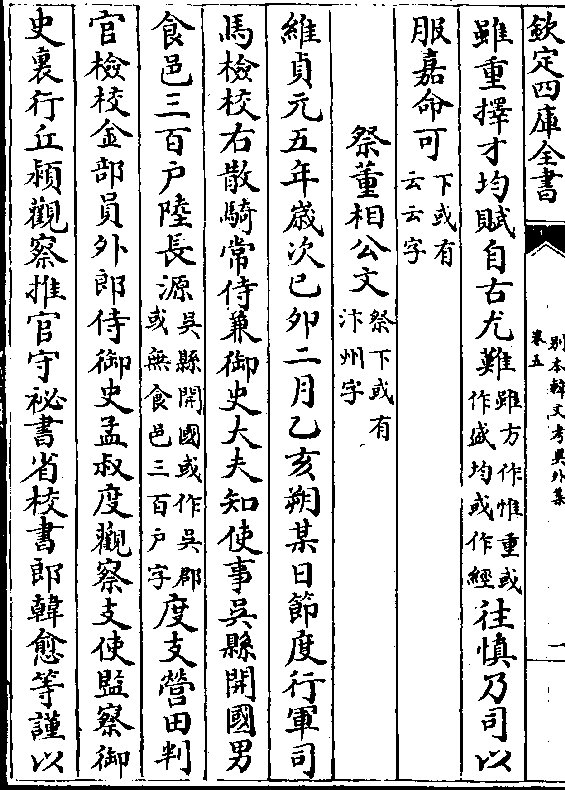 欽定四庫全書
別本韓文考異外集
卷五
雖重擇才均賦自古尤難雖方作惟重或作盛均或作經往慎乃司以
服嘉命可下或有云云字
祭董相公文祭下或有汴州字
維貞元五年歲次已卯二月乙亥朔某日節度行軍司
馬檢校右散騎常侍兼御史大夫知使事吳縣開國男
食邑三百户陸長源吳縣開國或作吳郡或無食邑三百户字度支營田判
官檢校金部員外郎侍御史孟叔度觀察支使監察御
史裏行丘頴觀察推官守祕書省校書郎韓愈等謹以